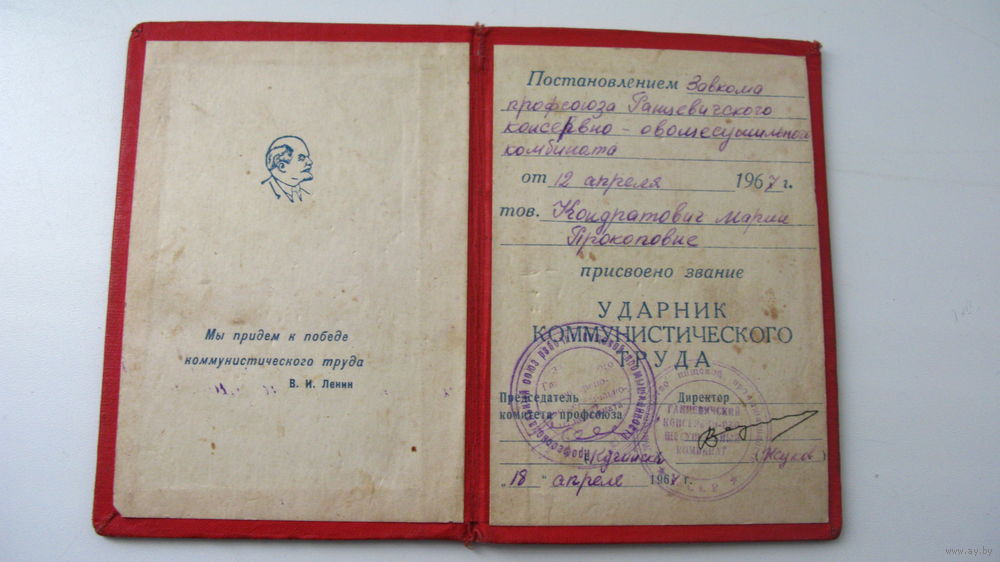 Мы придем к победе
коммунистического труда
В. И. Ленин
Постановлением Завкома
профсоюза Ганцевичского
консервно - овощесушильного
комбината
от 12 апреля 1967 г.
тов. Кондратович Марии
Прокоповне
присвоено звание
УДАРНИК
КОММУНИСТИЧЕСКОГО
ТРУДА
Председатель
комитета профсоюза
Директор
ГАНЦЕВИЧСКИЙ
КОМБИНАТ
(Жуков)
"18" апреля 1967 г.
www.ay.by